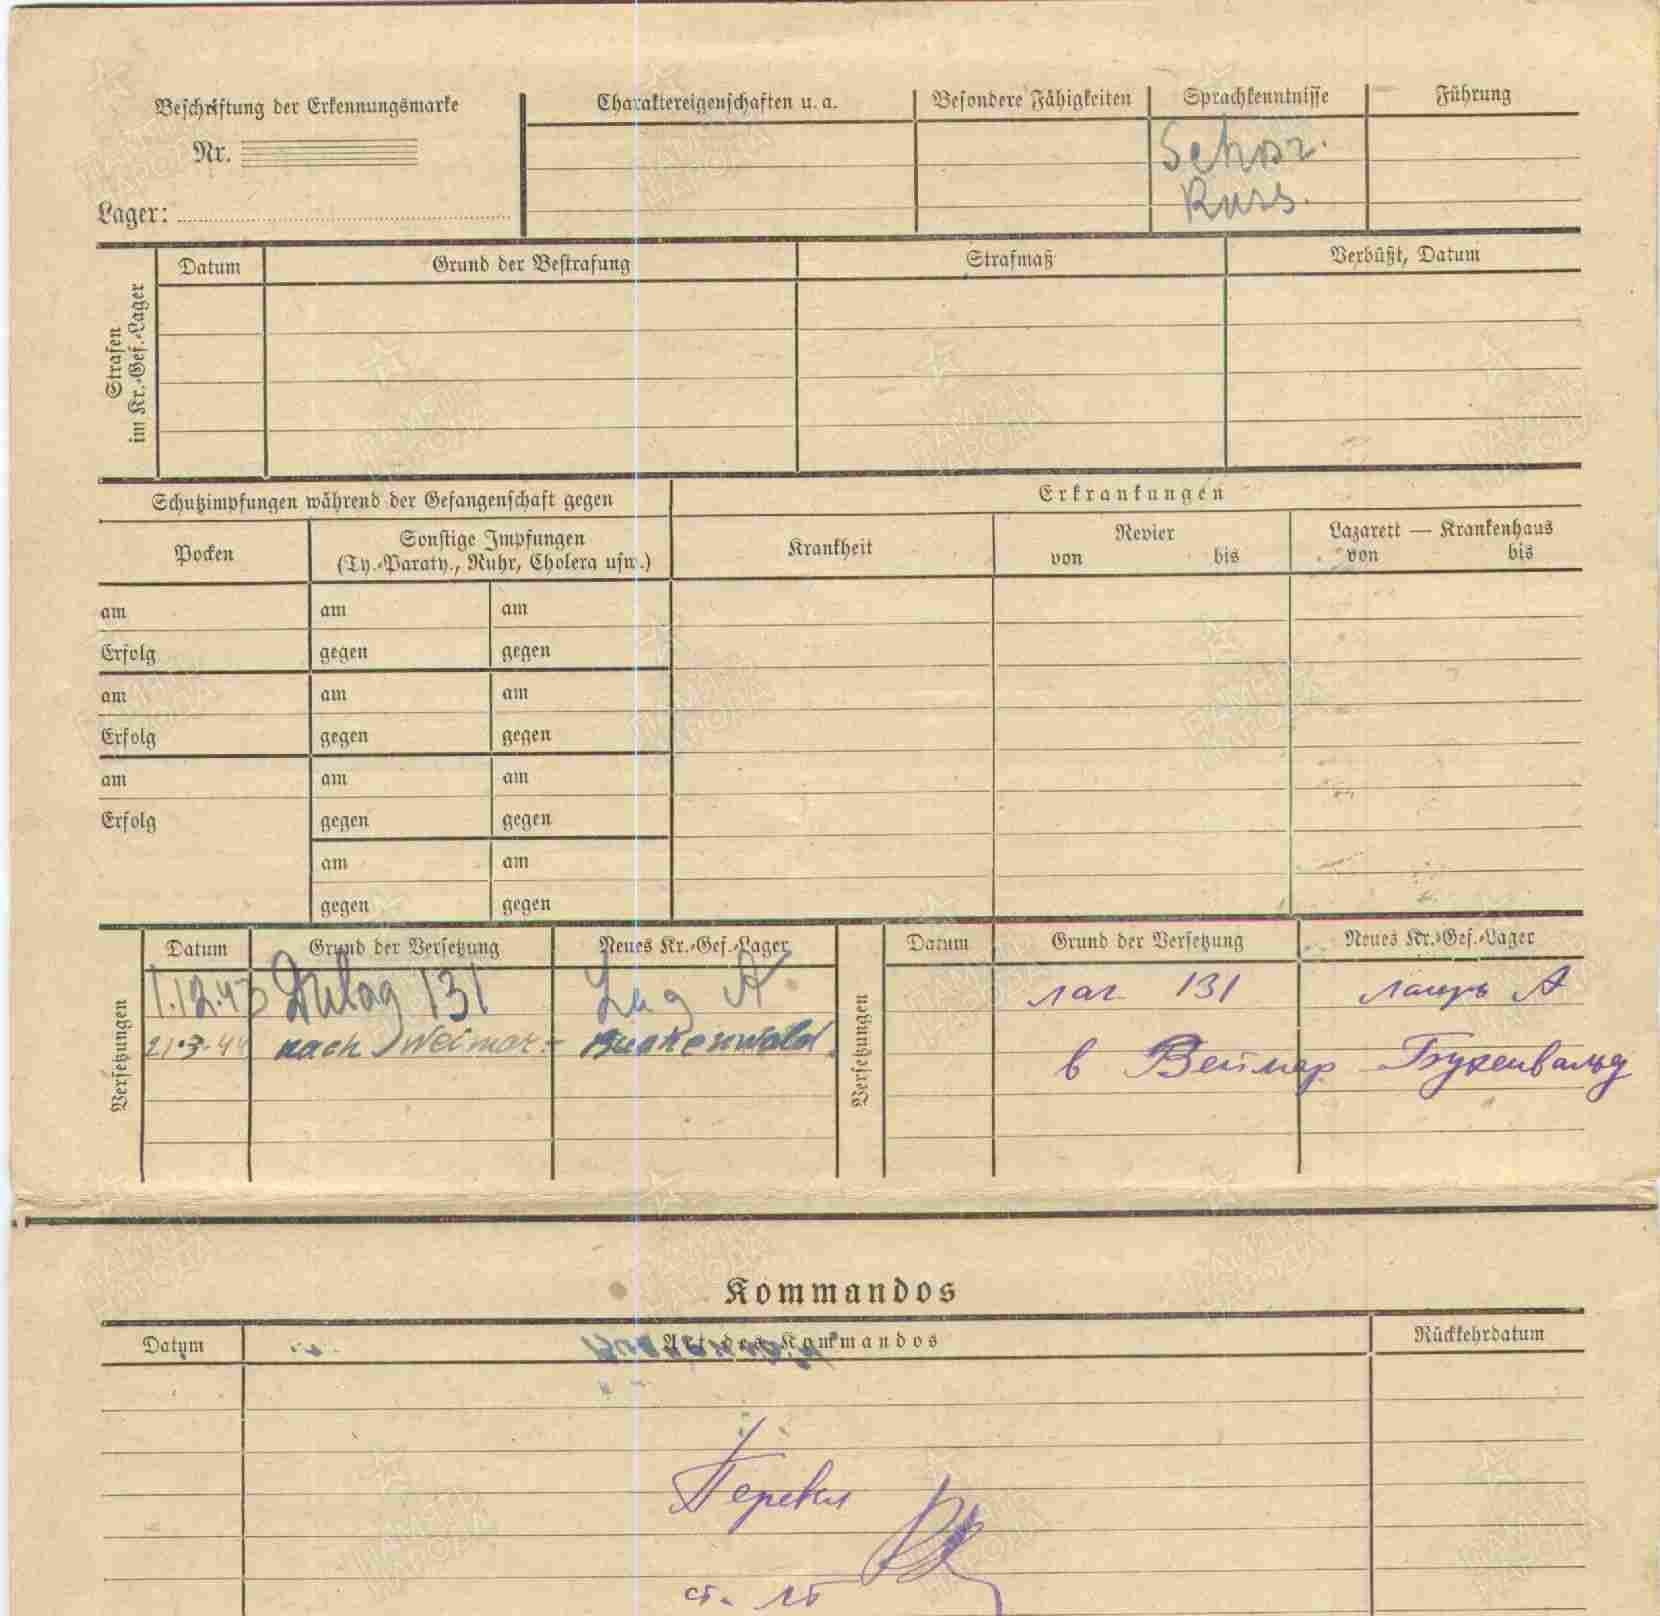 Beschriftung der Erkennungsmarke
Nr.
Lager:
Charaktereigenschaften u. a.
Besondere Fähigkeiten
Sprachkenntnisse
Führung
Russ.
Strafen
im Kr.-Gef.-Lager
Datum
Grund der Bestrafung
Strafmaß
Verbüßt, Datum
Schutzimpfungen während der Gefangenschaft gegen
Erkrankungen
Pocken
Sonstige Impfungen
(Ty.-Paraty., Ruhr, Cholera usw.)
Krankheit
Revier
von bis
Lazarett — Krankenhaus
von bis
am am am
Erfolg gegen gegen
am am am
Erfolg gegen gegen
am am am
Erfolg gegen gegen
am am
gegen gegen
Versetzungen
Datum Grund der Versetzung Neues Kr.-Gef.-Lager
1.12.43 Dulag 131 Lag A.
21.3.44 nach Weimar - Buchenwald.
Versetzungen
Datum Grund der Versetzung Neues Kr.-Gef.-Lager
лаг 131 лагерь А
в Веймар Бухенвальд
Kommandos
Datum Art des Kommandos Rückkehrdatum
Перевел
ст. лт
ПАМЯТЬ
НАРОДА